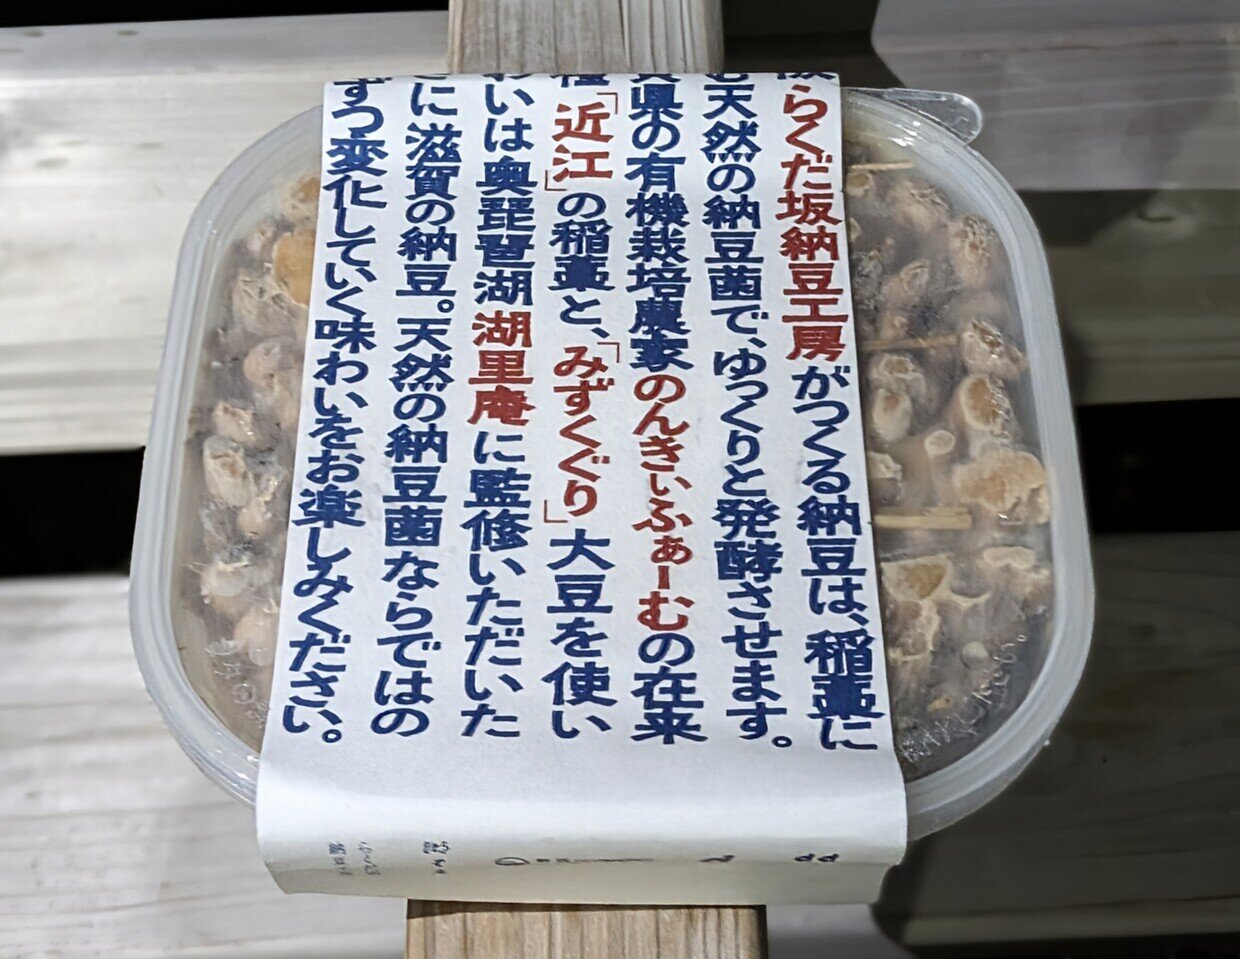 らくだ坂納豆工房がつくる納豆は、稲藁に
む天然の納豆菌で、ゆっくりと発酵させます。
県の有機栽培農家のんきぃふぁーむの在来
種「近江」の稲藁と、「みずくぐり」大豆を使い
わいは奥琵琶湖湖里庵に監修いただいた
に滋賀の納豆。天然の納豆菌ならではの
ずつ変化していく味わいをお楽しみください。